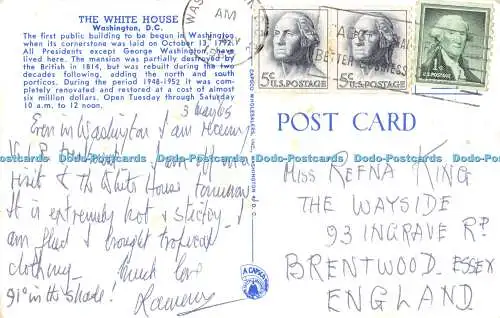 THE WHITE HOUSE
Washington, D.C.
The first public building to be begun in Washington
when its cornerstone was laid on October 13, 1792.
All Presidents except George Washington have
lived here. The mansion was partially destroyed by
the British in 1814, but was rebuilt during the two
decades following, adding the north and south
porticos. During the period 1948-1952 it was com-
pletely renovated and restored at a cost of almost
six million dollars. Open Tuesday through Saturday
10 a.m. to 12 noon.
3 May 65
Even in Washington I am receiving
V.I.P. treatment. I am off on a
visit to the White House tomorrow
It is extremely hot & sticky - I
am glad I brought tropical
clothing. Much love
91° in the shade!
CAPSCO WHOLESALERS, INC., WASHINGTON 4, D. C.
A CAPSCO
WAS
AM
5¢ U.S. POSTAGE
5¢ U.S. POSTAGE
1¢ U.S. POSTAGE
POST CARD
MISS REENA KING
THE WAYSIDE
93 INGRAVE RD
BRENTWOOD ESSEX
ENGLAND
Dodo-Postcards Dodo-Postcards Dodo-Postcards Dodo-Postcards Dodo-Postcards Dodo-Postcards